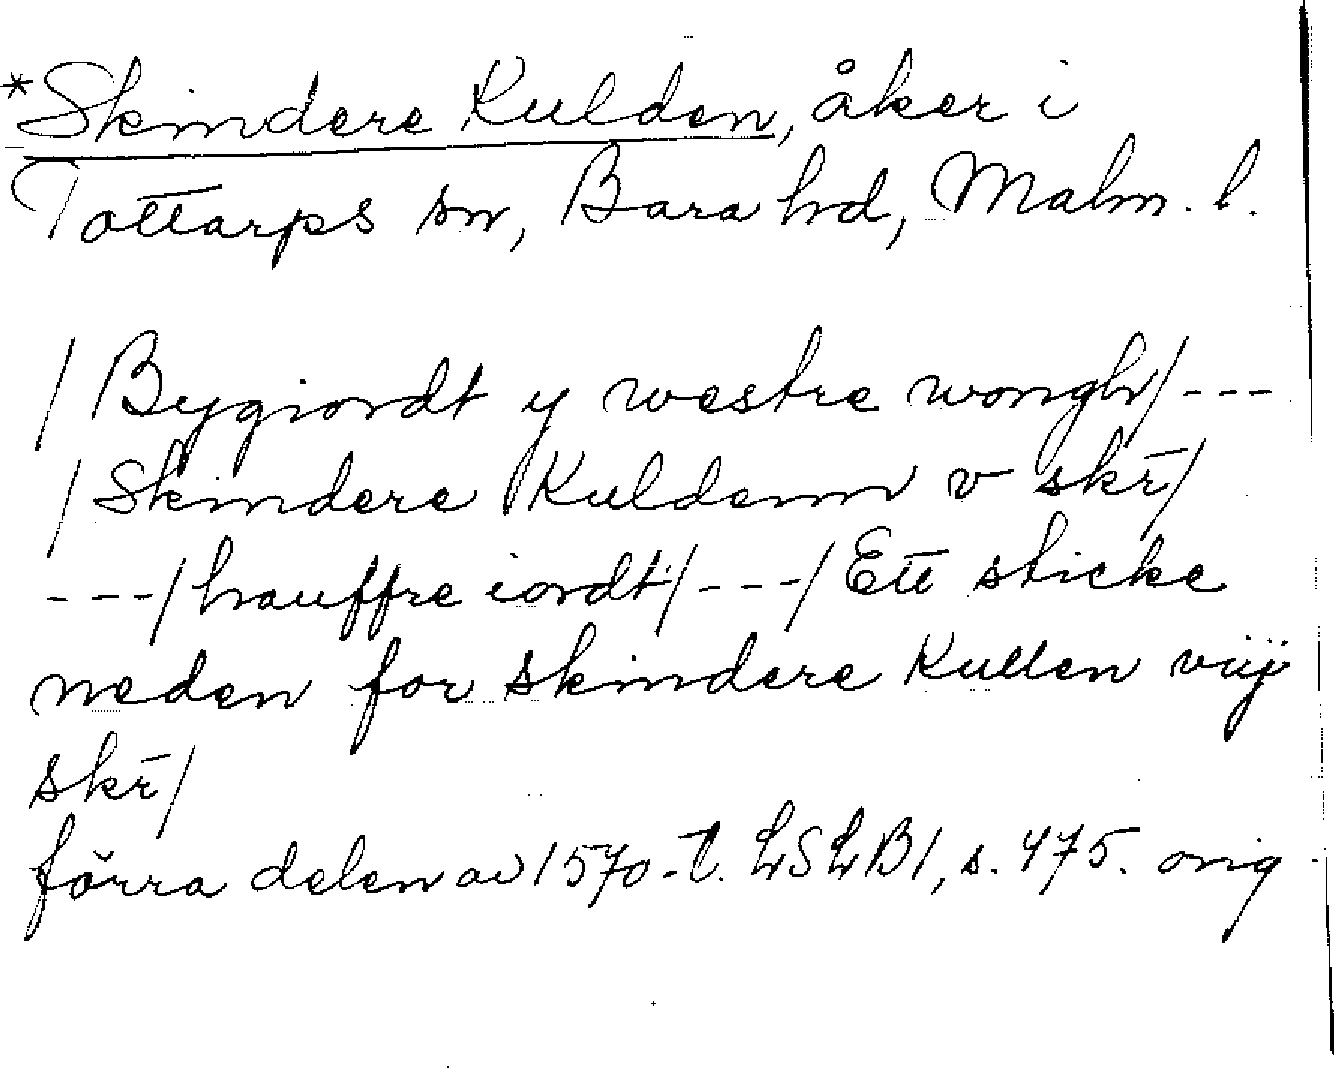 *Skindere Kulden, åker i
Tottarps sn, Bara hd, Malm. l.
/ Bygiordt y westre wongh/ ---
/ Skindere Kuldenn v skr̄/
---/ hauffre iordt/ ---/ Ett sticke
neden for skindere Kullen vij
skr̄/
förra delen av 1570-t. LSLB1, s. 475. orig